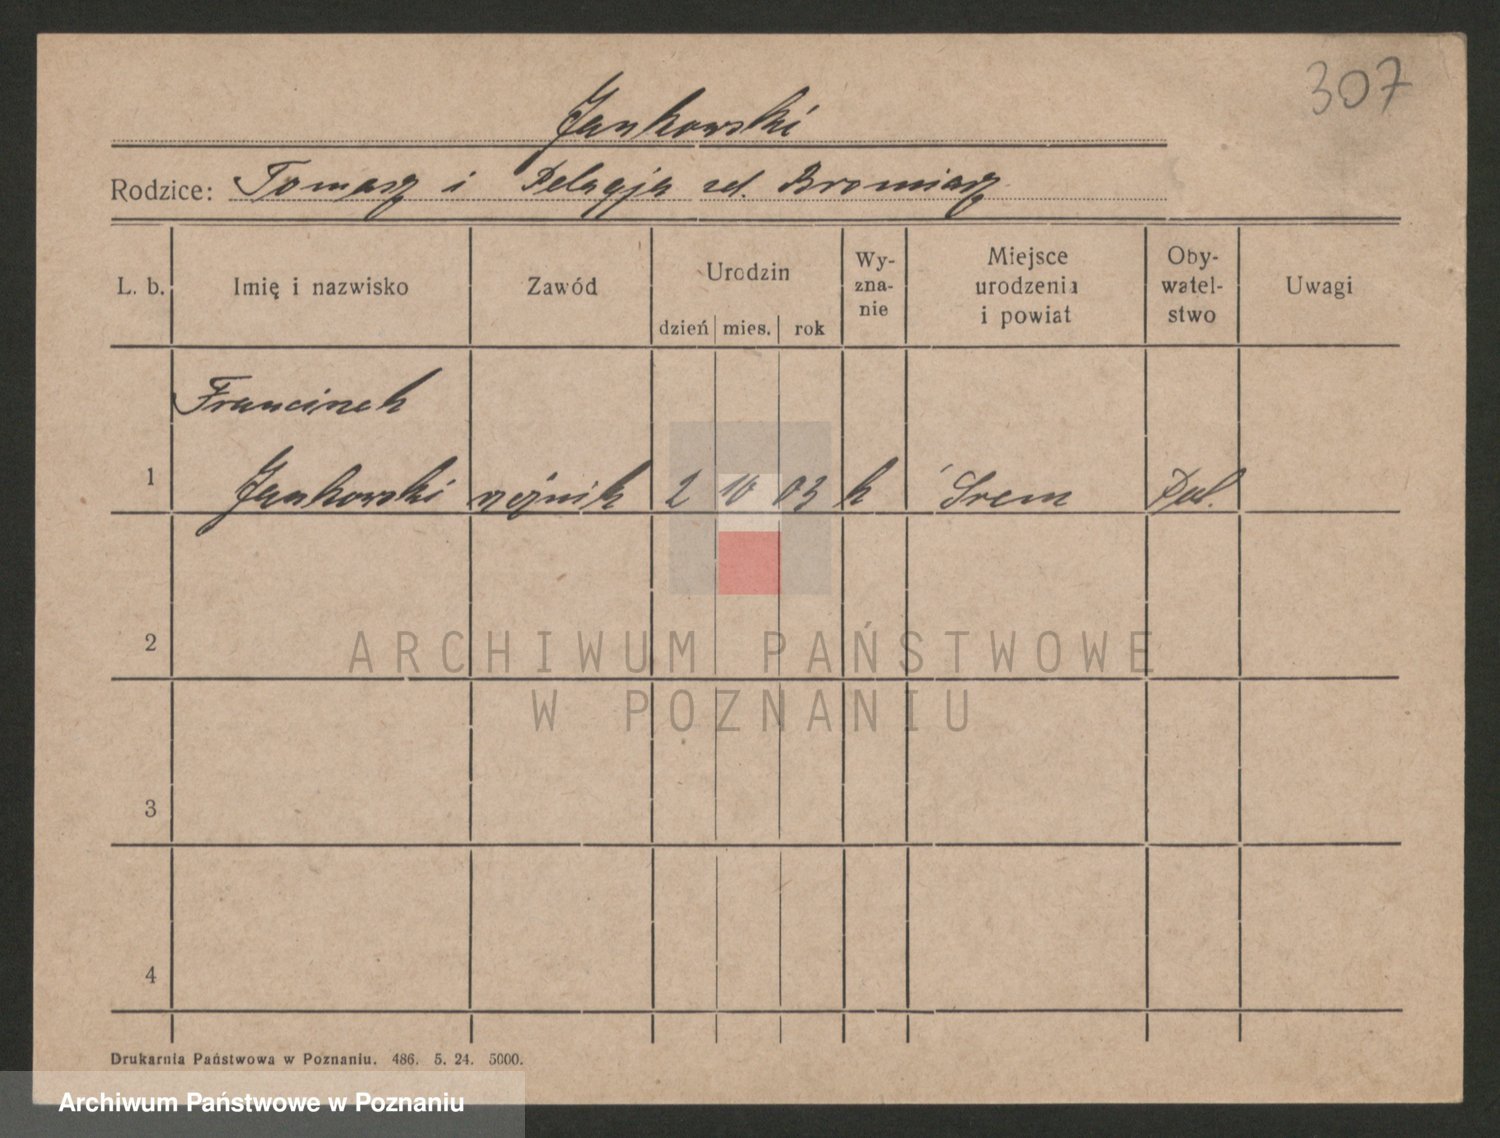 307
Jankowski
Rodzice: Tomasz i Pelagja zd. Bromiarz
L. b. Imię i nazwisko Zawód Urodzin dzień mies. rok Wy-zna-nie Miejsce urodzenia i powiat Oby-watel-stwo Uwagi
Franciszek
1 Jankowski rzeźnik 2 10 03 k Śrem Pol.
2
3
4
ARCHIWUM PAŃSTWOWE
W POZNANIU
Drukarnia Państwowa w Poznaniu. 486. 5. 24. 5000.
Archiwum Państwowe w Poznaniu